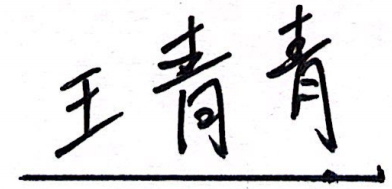 王青青